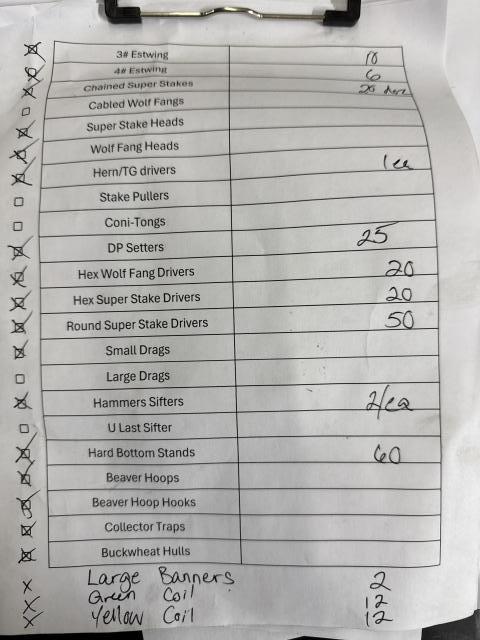 3# Estwing 18
4# Estwing 6
Chained Super Stakes
Cabled Wolf Fangs
Super Stake Heads
Wolf Fang Heads
Hern/TG drivers 1ea
Stake Pullers
Coni-Tongs
DP Setters 25
Hex Wolf Fang Drivers 20
Hex Super Stake Drivers 20
Round Super Stake Drivers 50
Small Drags
Large Drags
Hammers Sifters 2/ea
U Last Sifter
Hard Bottom Stands 60
Beaver Hoops
Beaver Hoop Hooks
Collector Traps
Buckwheat Hulls
Large Banners 2
Green Coil 12
Yellow Coil 12